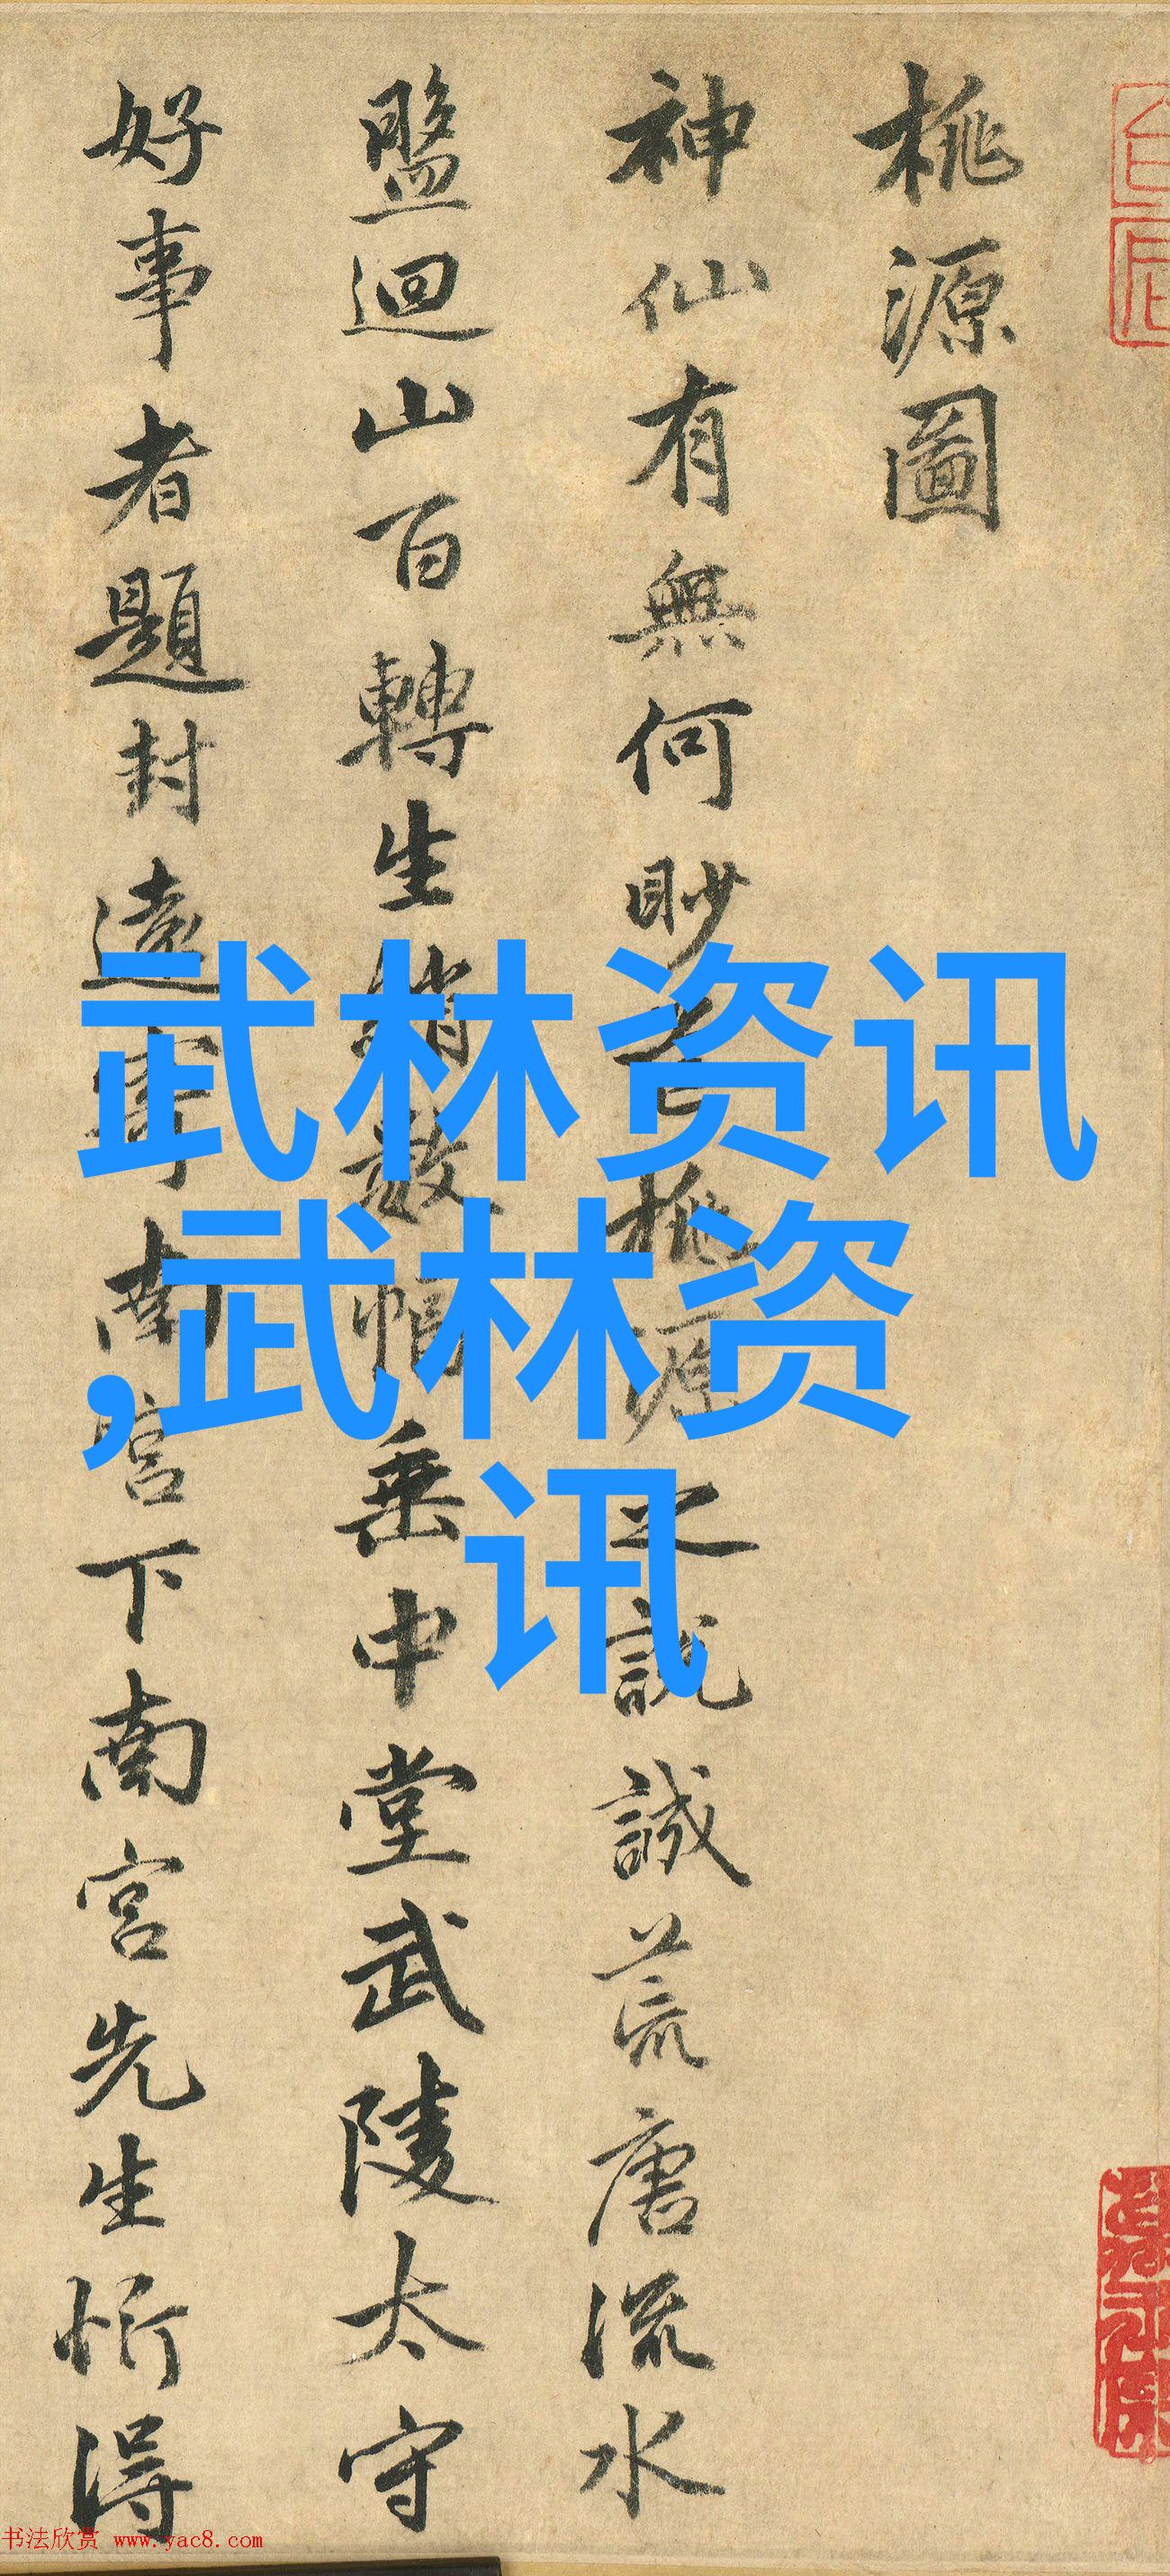 桃源圖
神仙有無何眇芒桃源之説誠荒唐流水
盤迴山百轉生綃數幅垂中堂武陵太守
好事者題封遠寄南宮下南宮先生忻得
武林资讯
,武林资
讯
书法欣赏 www.yac8.com